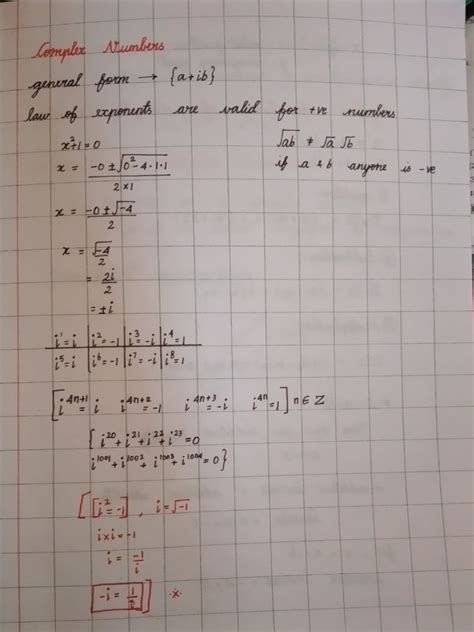 Complex Numbers
general form → {a+ib}
law of exponents are valid for +ve numbers
x²+1=0
√ab ≠ √a √b
if a & b anyone is -ve
x = -0 ± √0²-4·1·1 / 2×1
x = -0 ± √-4 / 2
x = √-4 / 2
= 2i / 2
= ±i
i¹ = i | i² = -1 | i³ = -i | i⁴ = 1
i⁵ = i | i⁶ = -1 | i⁷ = -i | i⁸ = 1
[i⁴ⁿ⁺¹ = i i⁴ⁿ⁺² = -1 i⁴ⁿ⁺³ = -i i⁴ⁿ = 1] n ∈ Z
{i²⁰ + i²¹ + i²² + i²³ = 0
i¹⁰⁰¹ + i¹⁰⁰² + i¹⁰⁰³ + i¹⁰⁰⁴ = 0}
[[i² = -1] , i = √-1
i×i = -1
i = -1 / i
-i = 1 / i]